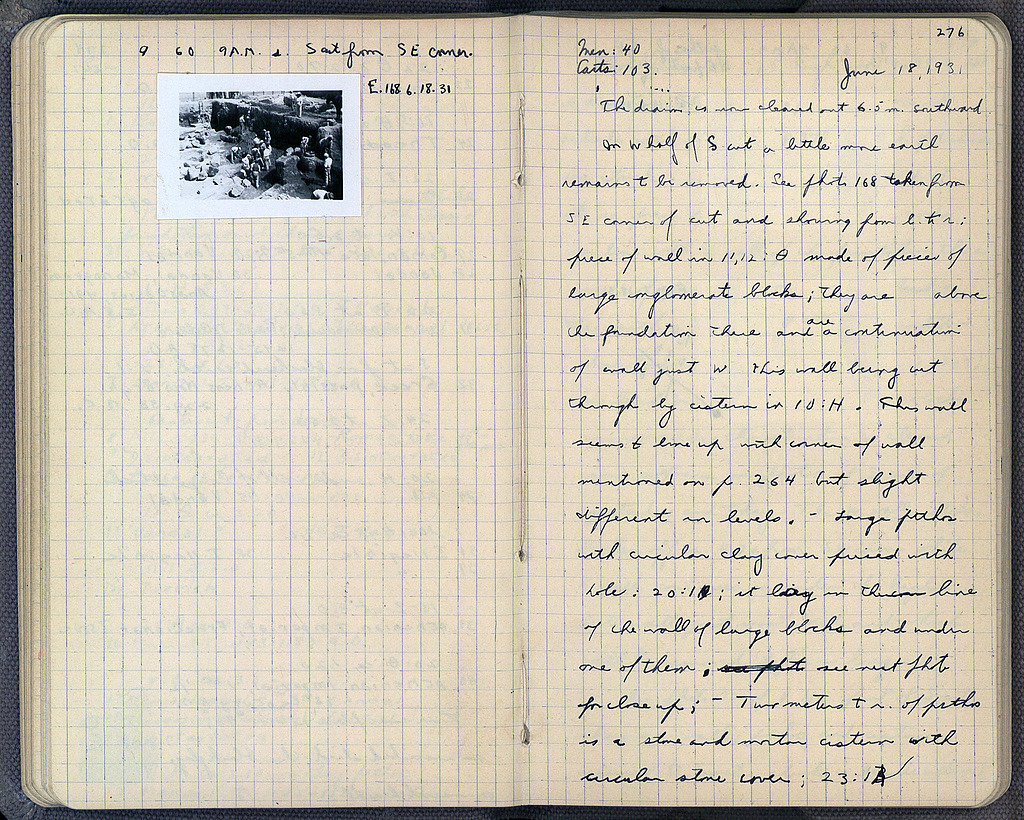 9 60 9 A.M. S cut from SE corner.
E. 168 6. 18. 31
276
Men: 40
Carts: 103.
June 18, 1931
The drain is now cleared out 6.5 m. southward
In W half of S cut a little more earth
remains to be removed. See photo 168 taken from
SE corner of cut and showing from l. to r:
piece of wall in 11,12: Θ made of pieces of
large conglomerate blocks; they are above
the foundation there and are a continuation
of wall just W this wall being cut
through by cistern in 10:H. This wall
seems to line up with corner of wall
mentioned on p. 264 but slight
different in levels. - Large pithos
with circular clay cover pierced with
hole: 20:; it lay in line
of the wall of large blocks and under
one of them; see next photo
for close up; - Two meters to r. of pithos
is a stone and mortar cistern with
circular stone cover; 23: